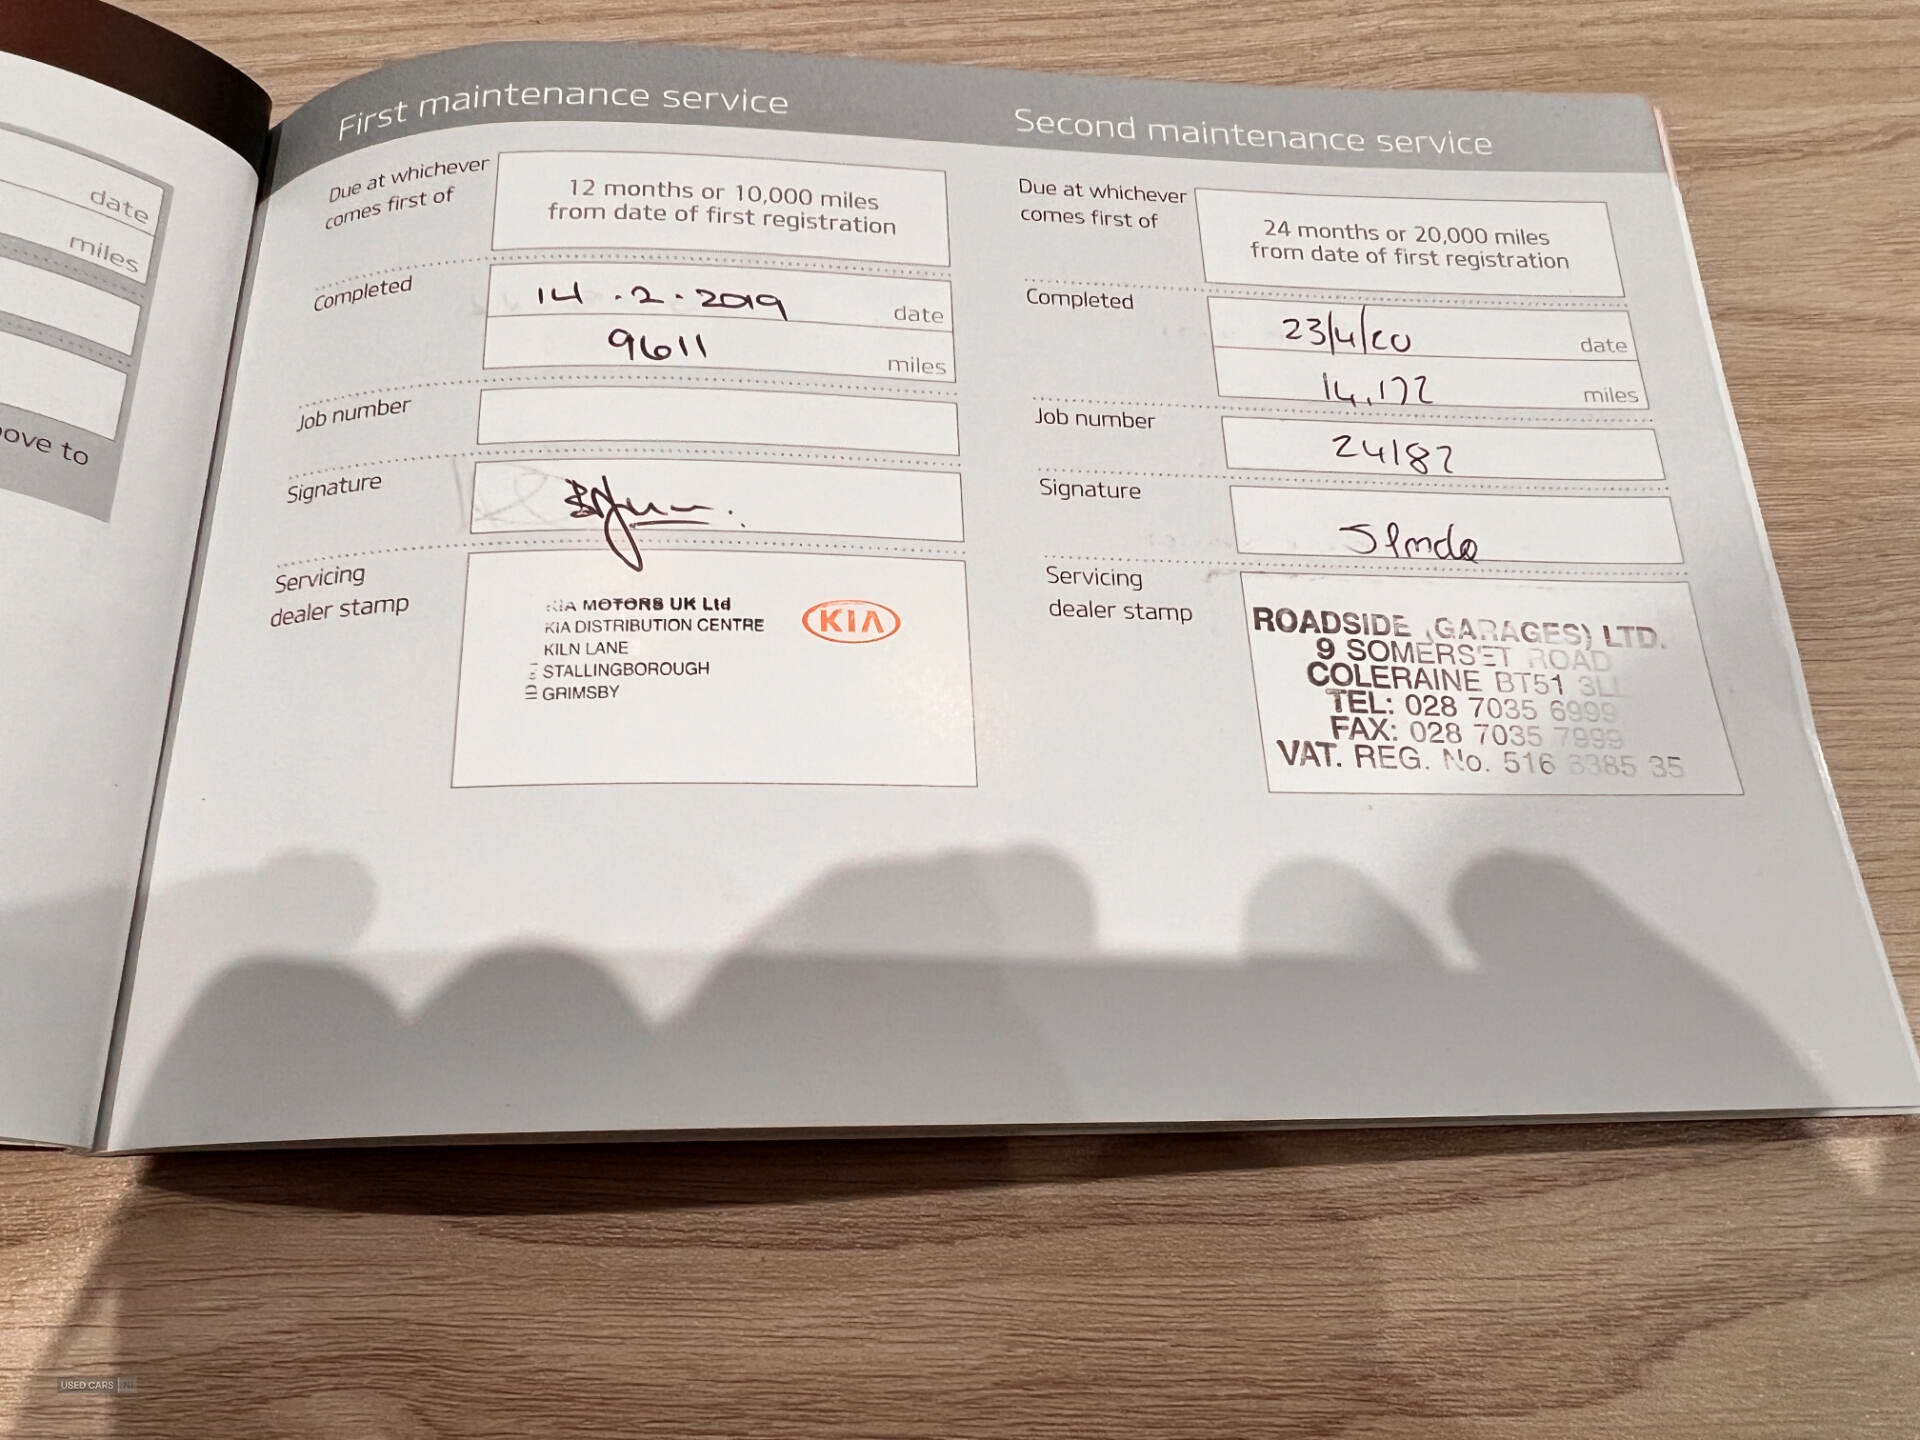 date
miles
ove to
First maintenance service
Due at whichever
comes first of
12 months or 10,000 miles
from date of first registration
Completed
14.2.2019
date
9611
miles
Job number
Signature
Servicing
dealer stamp
KIA MOTORS UK Ltd
KIA DISTRIBUTION CENTRE
KILN LANE
STALLINGBOROUGH
GRIMSBY
KIA
Second maintenance service
Due at whichever
comes first of
24 months or 20,000 miles
from date of first registration
Completed
23/4/20
date
14,172
miles
Job number
24182
Signature
Servicing
dealer stamp
ROADSIDE (GARAGES) LTD.
9 SOMERSET ROAD
COLERAINE BT51 3LL
TEL: 028 7035 6999
FAX: 028 7035 7999
VAT. REG. No. 516 6385 35
USED CARS NI